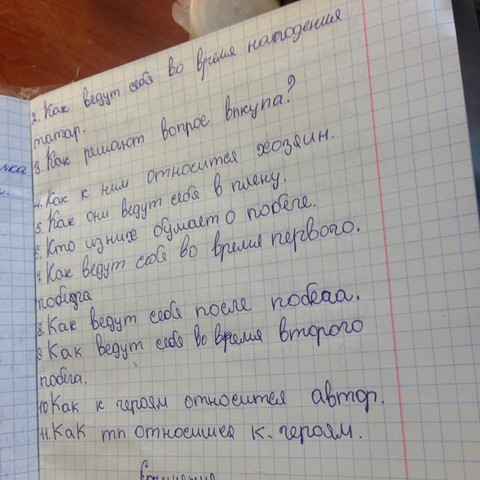 2. Как ведут себя во время нападения
татар.
3. Как решают вопрос выкупа?
4. Как к ним относится хозяин.
5. Как они ведут себя в плену.
6. Кто из них думает о побеге.
7. Как ведут себя во время первого.
побега
8. Как ведут себя после побега.
9 Как ведут себя во время второго
побега.
10 Как к героям относится автор.
11. Как ты относишся к. героям.